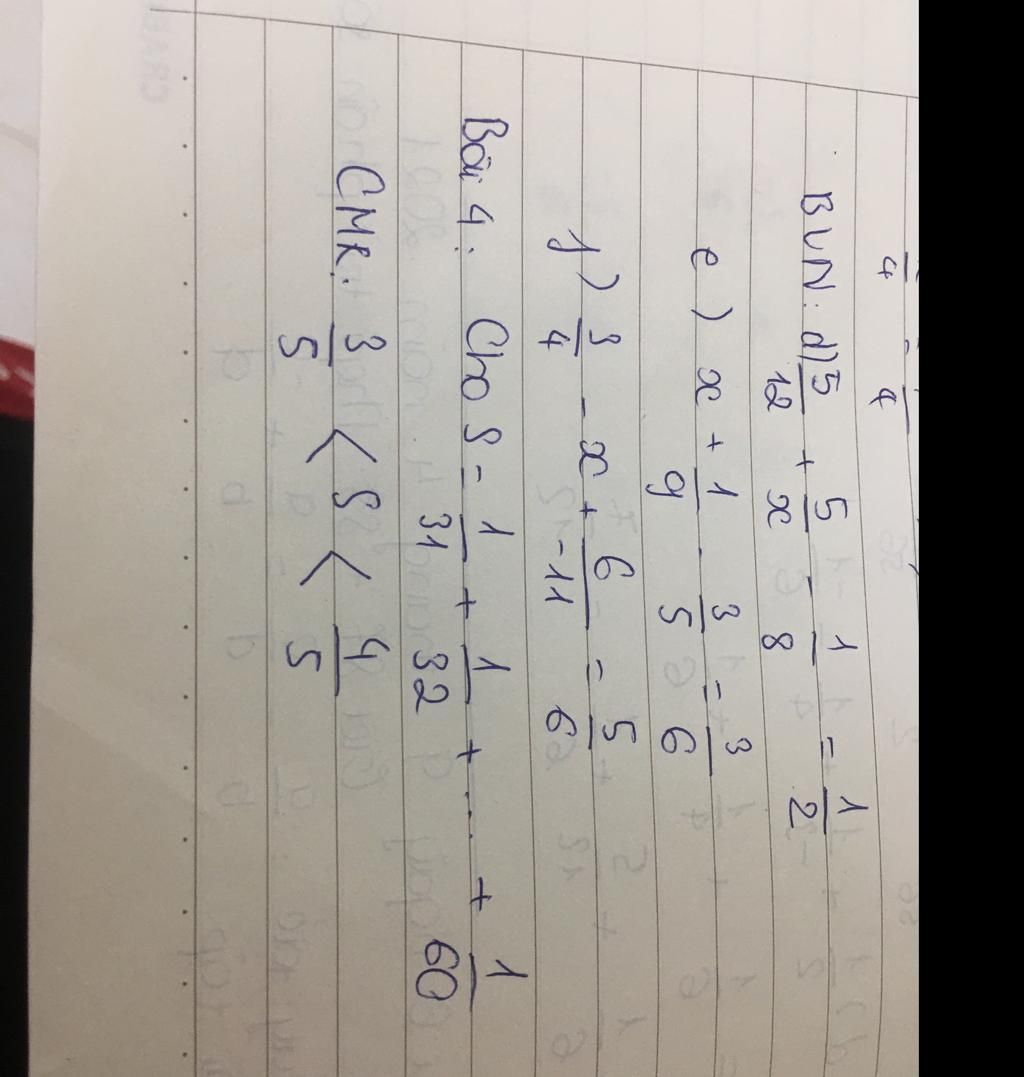 4 4
BVN: d) 5/12 + 5/x - 1/8 = 1/2
e) x + 1/9 - 3/5 = 3/6
f) 3/4 - x + 6/-11 = 5/6
Bài 4: Cho S = 1/31 + 1/32 + .... + 1/60
CMR: 3/5 < S < 4/5